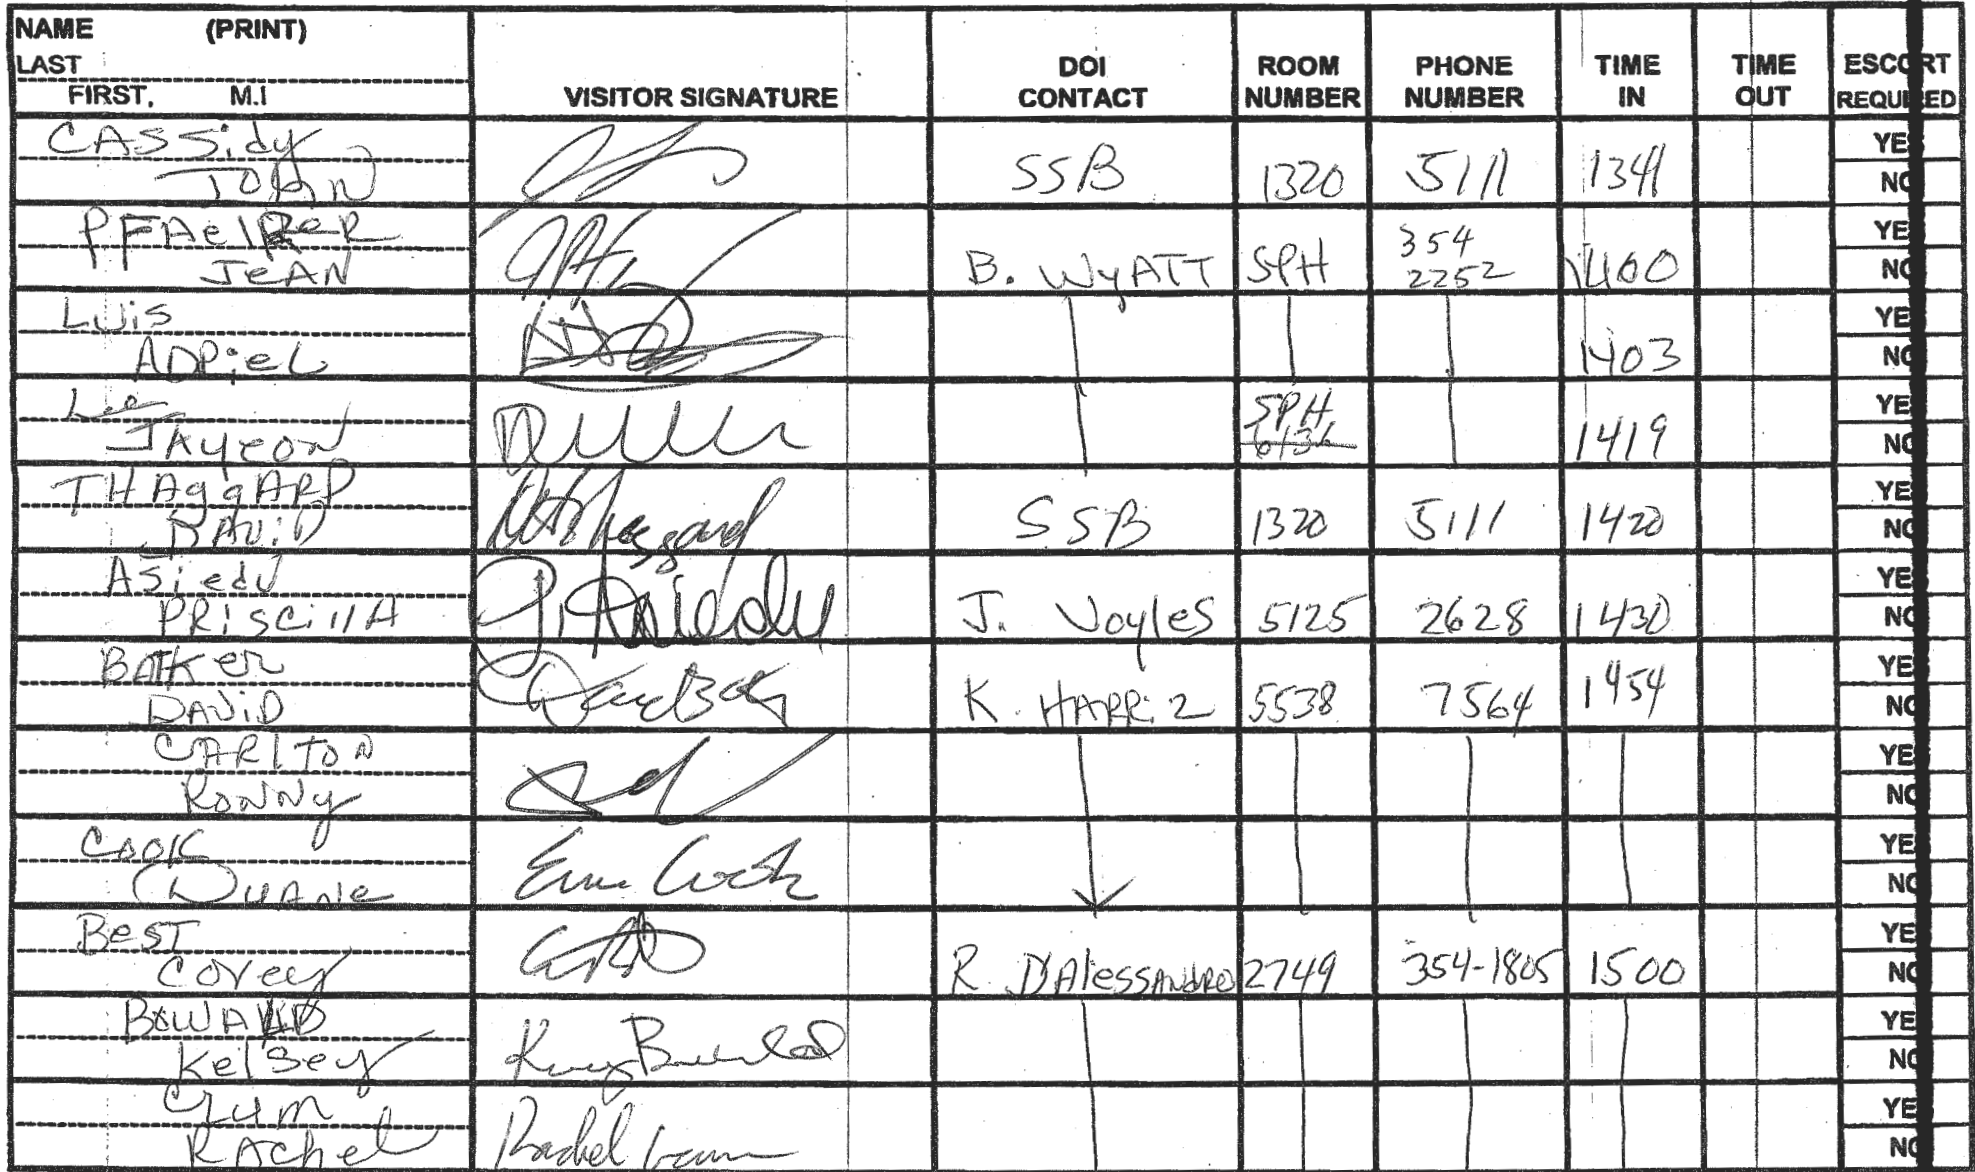 NAME (PRINT)
LAST
FIRST, M.I
VISITOR SIGNATURE
DOI CONTACT
ROOM NUMBER
PHONE NUMBER
TIME IN
TIME OUT
ESCORT REQUIRED
CASSidy
JOHN
SSB 1320 5111 1341
YES
NO
JEAN
B. WyATT SPH 354 2252 1400
YES
NO
Luis
ADRieL
1403
YES
NO
Lee
JAYEON
SPH
1419
YES
NO
THAggARD
DAViD
SSB 1320 5111 1420
YES
NO
ASiedu
PRiscillA
J. Voyles 5125 2628 1430
YES
NO
BAKer
DAViD
K. 5538 7564 1454
YES
NO
CARlTON
RONNy
YES
NO
COOK
DUANe
YES
NO
BeST
Corey
R. D'AlessANdRO 2749 354-1805 1500
YES
NO
Kelsey
YES
NO
Crum
RAchel
Rachel Crum
YES
NO